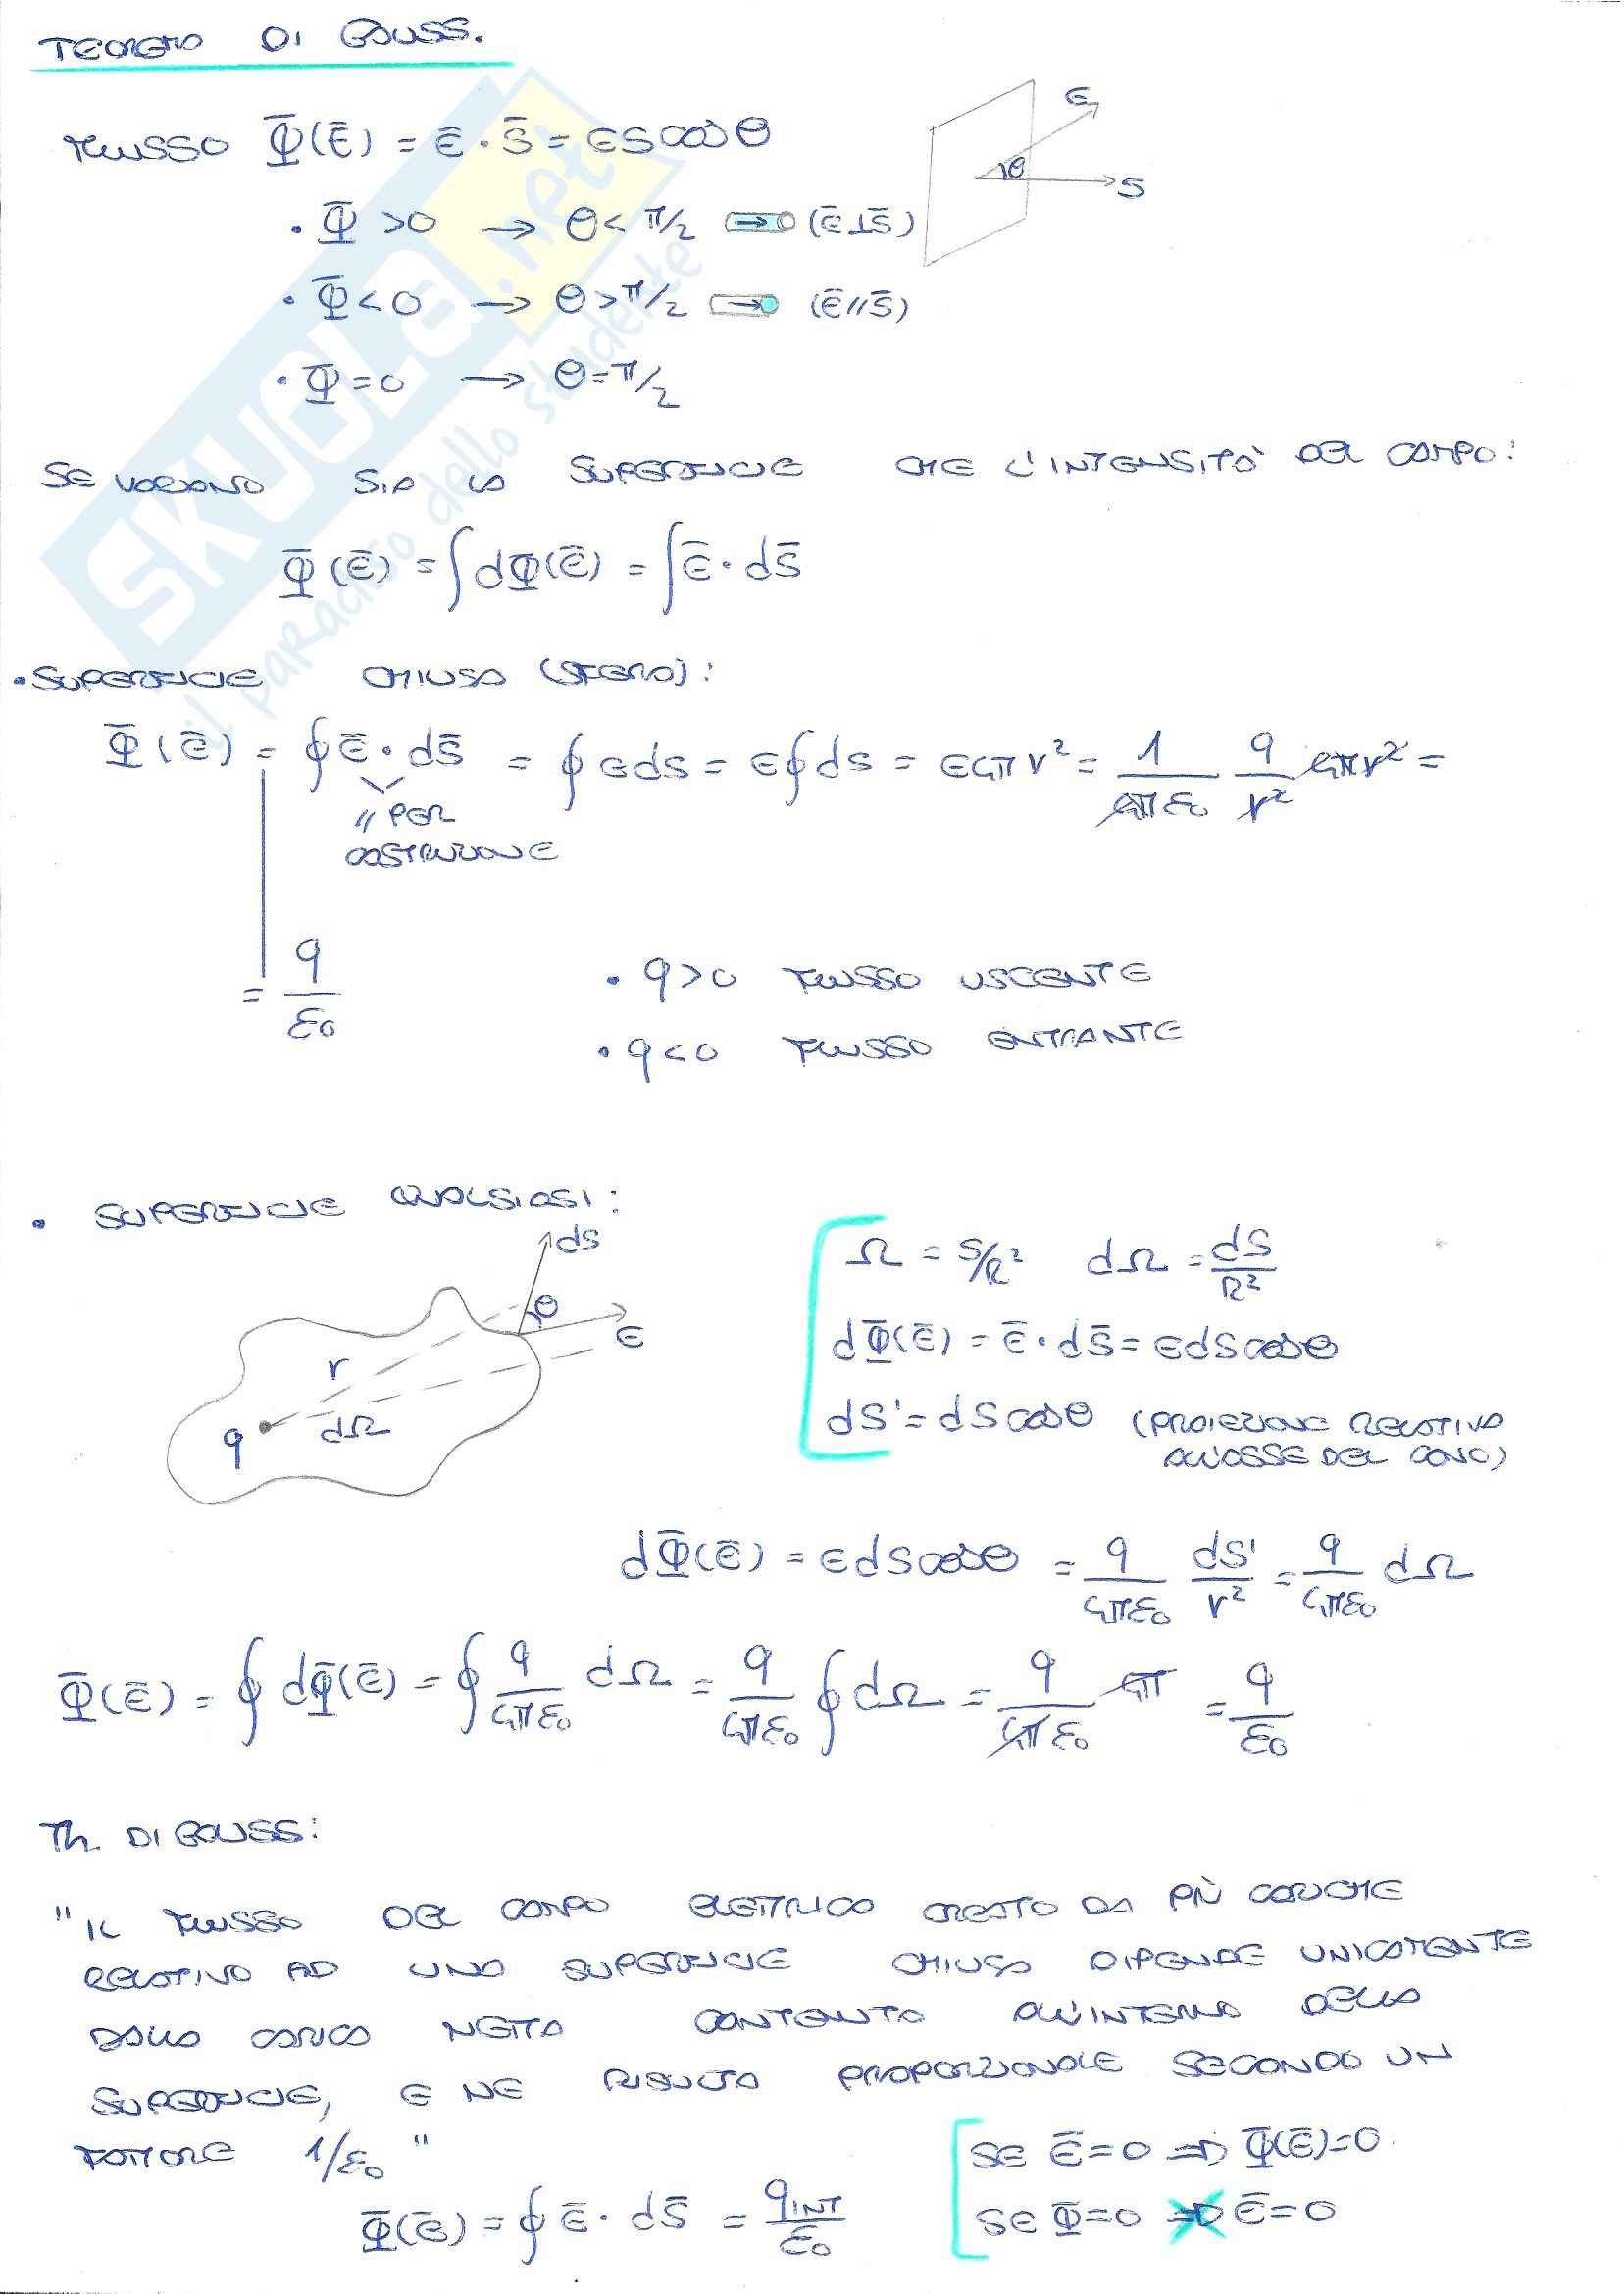 TEOREMA DI GAUSS.
FLUSSO Φ(Ē) = Ē · S̄ = ES cosθ
E
θ
S
• Φ > 0 → θ < π/2 (Ē ⊥ S̄)
• Φ < 0 → θ > π/2 (Ē // S̄)
• Φ = 0 → θ = π/2
SE VARIANO SIA LA SUPERFICIE CHE L'INTENSITA' DEL CAMPO:
Φ(Ē) = ∫dΦ(Ē) = ∫Ē · dS̄
• SUPERFICIE CHIUSA (SFERA):
Φ(Ē) = ∮Ē · dS̄ = ∮EdS = E∮dS = E4πr² = 1/4πε₀ q/r² 4πr² =
// PER
COSTRUZIONE
= q/ε₀
• q>0 FLUSSO USCENTE
• q<0 FLUSSO ENTRANTE
• SUPERFICIE QUALSIASI:
dS
θ
E
r
dΩ
q
Ω = S/R² dΩ = dS/R²
dΦ(Ē) = Ē · dS̄ = EdS cosθ
dS' = dS cosθ (PROIEZIONE RELATIVA
ALL'ASSE DEL CONO)
dΦ(Ē) = EdS cosθ = q/4πε₀ dS'/r² = q/4πε₀ dΩ
Φ(Ē) = ∮dΦ(Ē) = ∮ q/4πε₀ dΩ = q/4πε₀ ∮dΩ = q/4πε₀ 4π = q/ε₀
Th. DI GAUSS:
"IL FLUSSO DEL CAMPO ELETTRICO CREATO DA PIÙ CARICHE
RELATIVO AD UNA SUPERFICIE CHIUSA DIPENDE UNICAMENTE
DALLA CARICA NETTA CONTENUTA ALL'INTERNO DELLA
SUPERFICIE, E NE RISULTA PROPORZIONALE SECONDO UN
FATTORE 1/ε₀"
Φ(Ē) = ∮Ē · dS̄ = qINT/ε₀
SE Ē=0 ⇒ Φ(Ē)=0
SE Φ=0 ⇏ Ē=0
SKUOLA.net
il paradiso dello studente